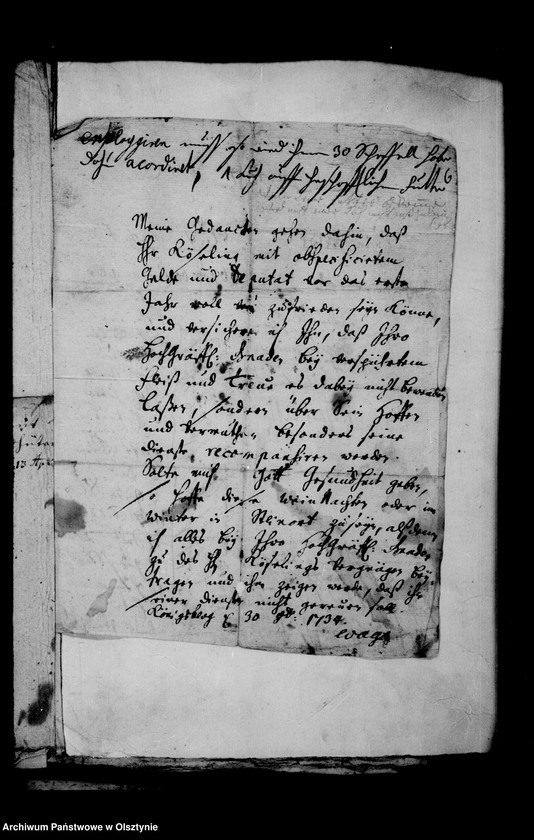 muß, so und ihm 30 Scheffel habe
acordiret, 1 Kuh auff Futter
Meine Gedancken gehen dahin, daß
Hr Köseling mit obspecificirtem
Gelde und Deputat vor das erste
Jahr woll wird zufrieden seyn können,
und versichere ich Ihn, daß Ihro
HochGräffl: Gnaden bey verspührtem
Fleiß und Treue es dabey nicht bewenden
laßen, sondern über Sein Hoffen
und Vermuthen besonders seine
dienste recompansiren werden.
Solte mich Gott Gesundheit geben,
so hoffe diese Weinnachten oder im
Winter in zu seyn, alsdenn
ich alles bey Ihro HochGräffl: Gnaden
zu des H Köselings Vergnügen bey
tragen und ihm zeigen werde, daß ihn
seiner dienste nicht gereuen soll
Königsberg 30 1734.
Archiwum Państwowe w Olsztynie